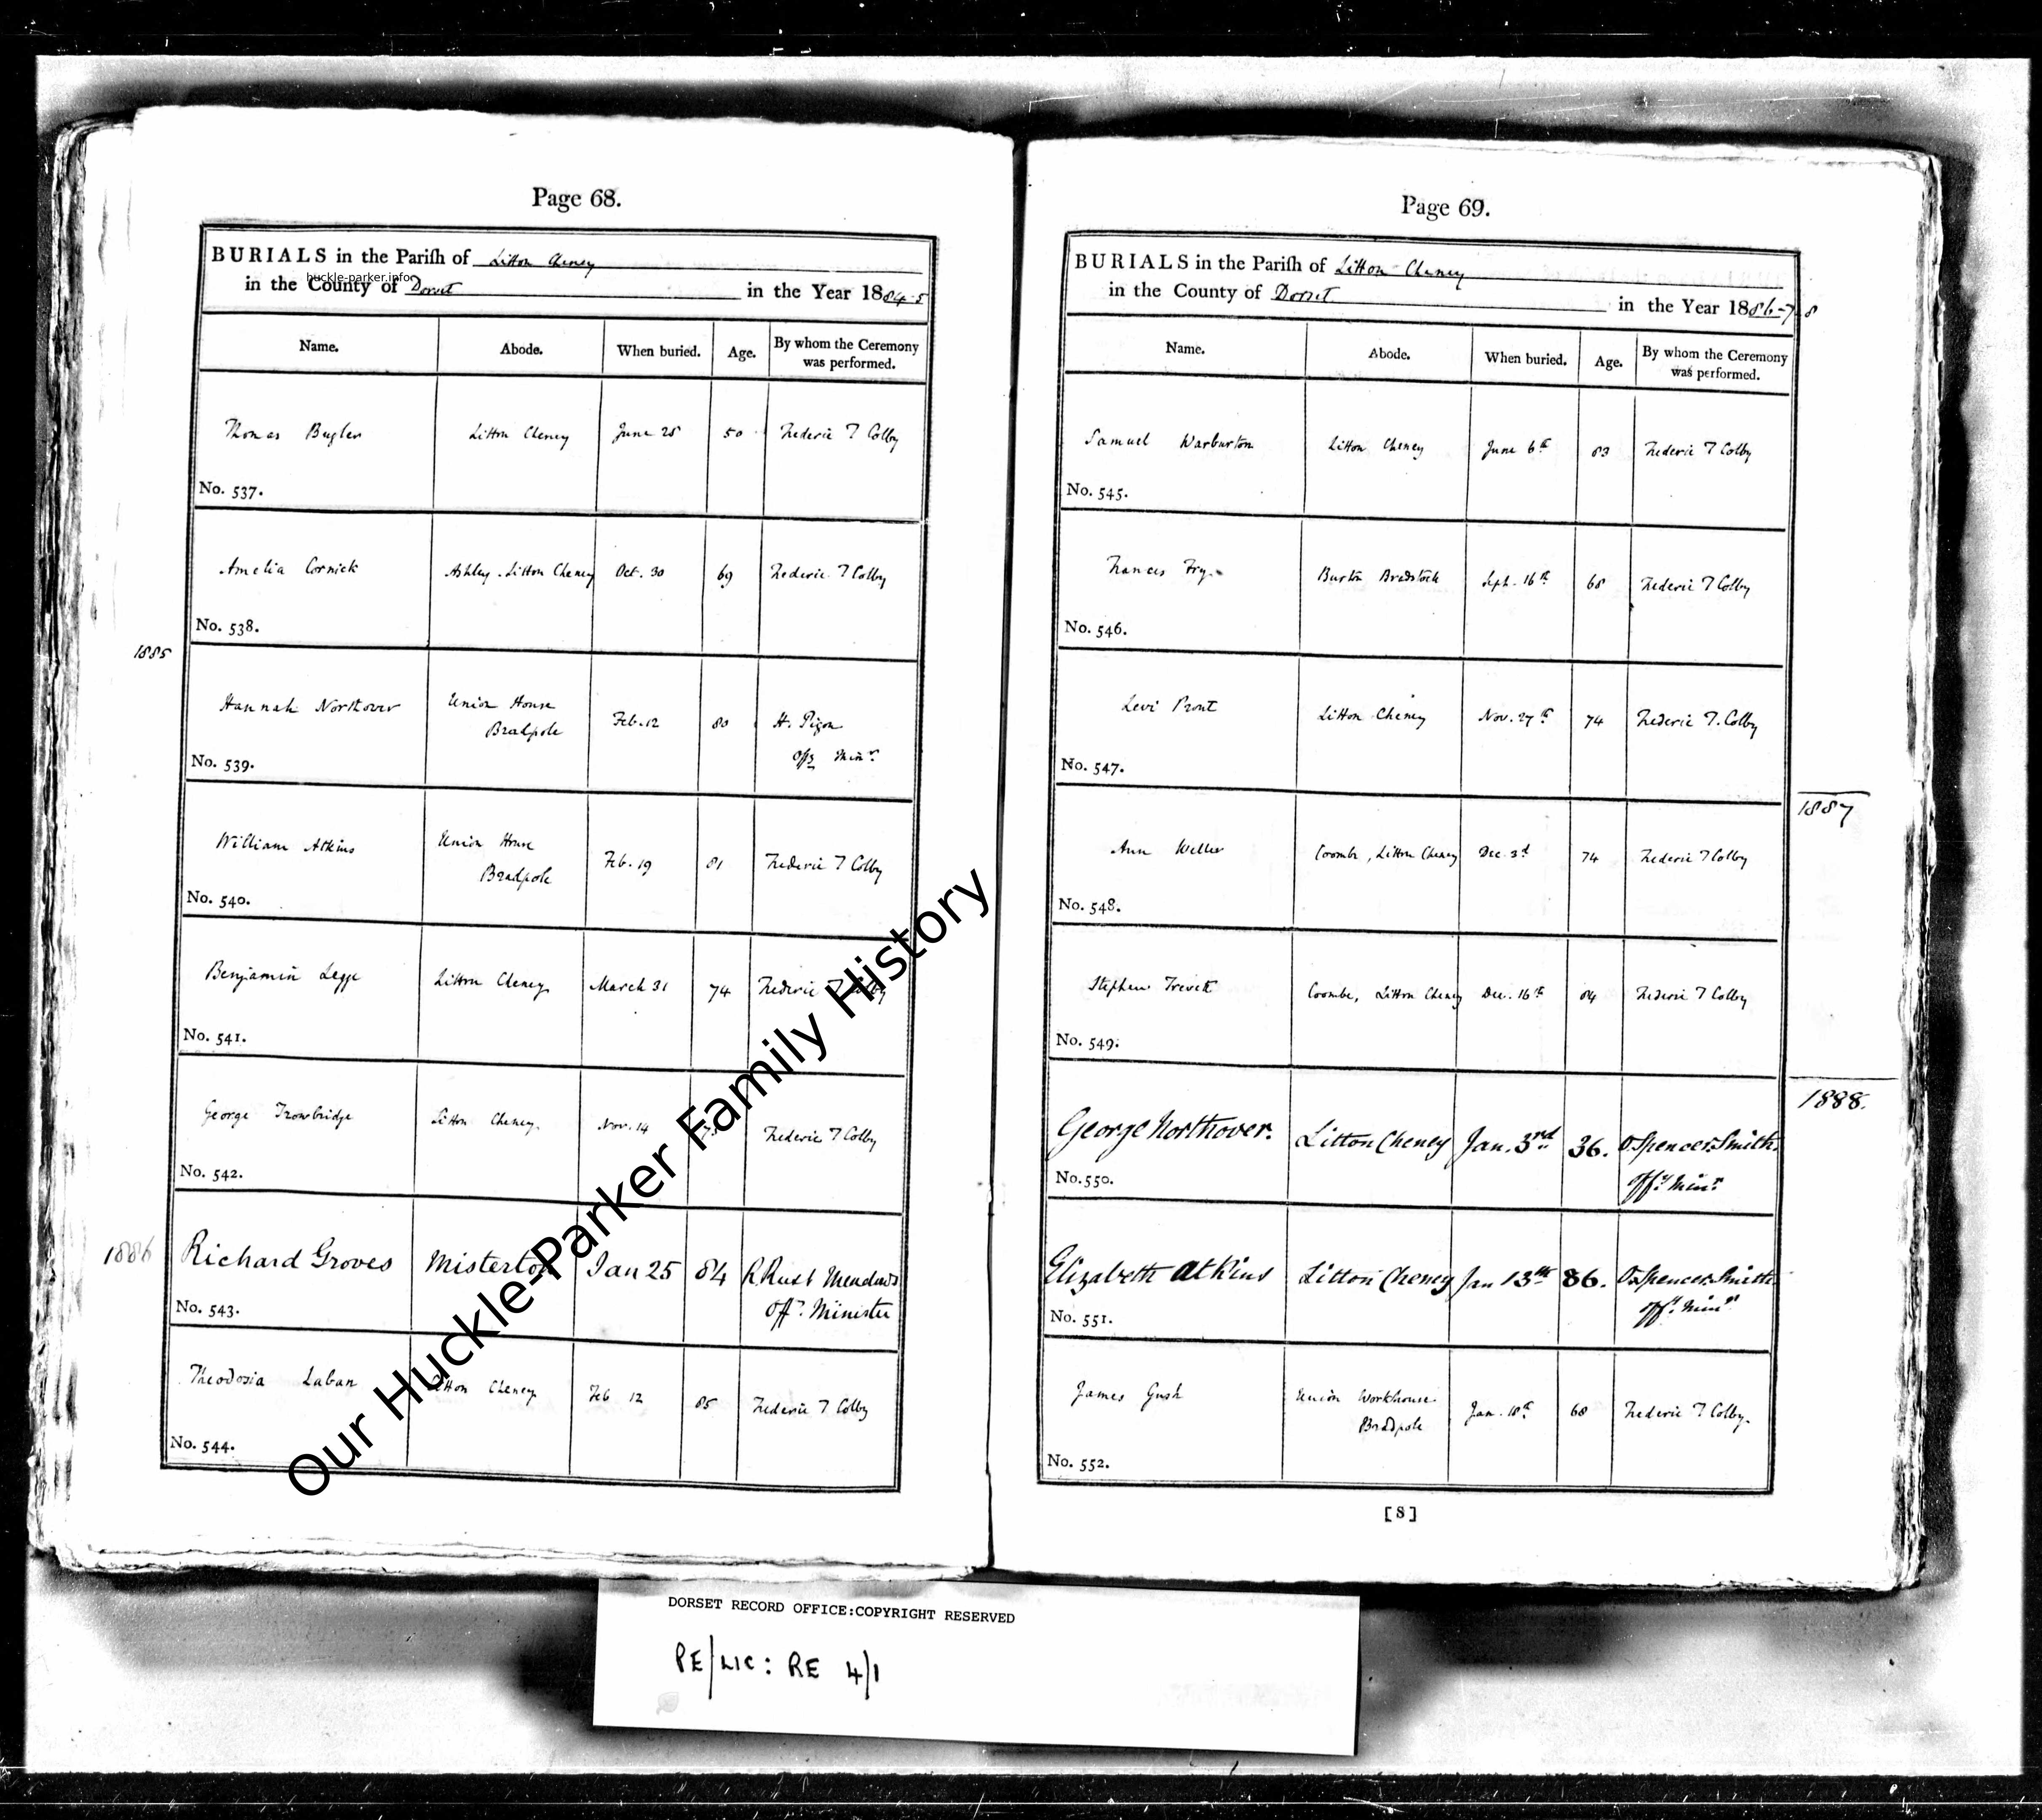 Page 68.
BURIALS in the Parish of Litton Cheney
huckle-parker.info
in the County of Dorset in the Year 1884-5
Name. Abode. When buried. Age. By whom the Ceremony was performed.
Thomas Bugler Litton Cheney June 28 50 Frederic T Colby
No. 537.
Amelia Cornick Ashley Litton Cheney Oct. 30 69 Frederic T Colby
No. 538.
1885
Hannah Northover Union House Bradpole Feb. 12 80 H. Pigou Offg Minr.
No. 539.
William Atkins Union House Bradpole Feb. 19 81 Frederic T Colby
No. 540.
Benjamin Legge Litton Cheney March 31 74 Frederic T Colby
No. 541.
George Trowbridge Litton Cheney. Nov. 14 Frederic T Colby
No. 542.
1886
Richard Groves Misterton Jan 25 84 R Rust Meadows Offg. Minister
No. 543.
Theodosia Laban Litton Cheney Feb 12 85 Frederic T Colby
No. 544.
Page 69.
BURIALS in the Parish of Litton Cheney
in the County of Dorset in the Year 1886-7-8
Name. Abode. When buried. Age. By whom the Ceremony was performed.
Samuel Warburton Litton Cheney June 6th 83 Frederic T Colby
No. 545.
Frances Fry Burton Bradstock Sept. 16th 68 Frederic T Colby
No. 546.
Levi Prout Litton Cheney Nov. 27th 74 Frederic T. Colby
No. 547.
1887
Ann Weller Coombe, Litton Cheney Dec. 3d 74 Frederic T Colby
No. 548.
Stephen Trevett Coombe, Litton Cheney Dec. 16th 84 Frederic T Colby
No. 549.
1888.
George Northover. Litton Cheney Jan. 3rd 36. O. Spencer Smith. Offg. Minr.
No. 550.
Elizabeth Atkins Litton Cheney Jan 13th 86. O. Spencer Smith Offg. Minr.
No. 551.
James Gush Union Workhouse Bradpole Jan. 18th 68 Frederic T Colby.
No. 552.
[S]
Our Huckle-Parker Family History
DORSET RECORD OFFICE:COPYRIGHT RESERVED
PE/LIC: RE 4/1